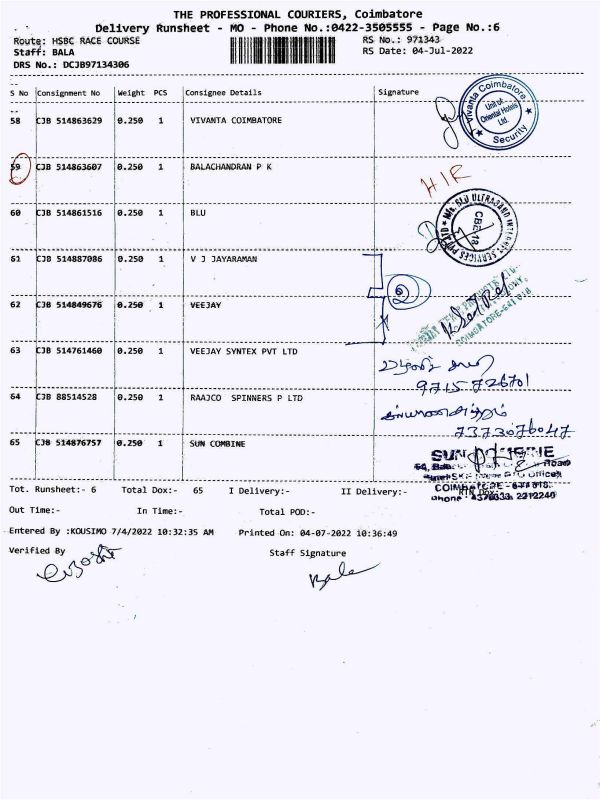 THE PROFESSIONAL COURIERS, Coimbatore
Delivery Runsheet - MO - Phone No.:0422-3505555 - Page No.:6
Route: HSBC RACE COURSE RS No.: 971343
Staff: BALA RS Date: 04-Jul-2022
DRS No.: DCJB97134306
S No Consignment No Weight PCS Consignee Details Signature
58 CJB 514863629 0.250 1 VIVANTA COIMBATORE
Vivanta Coimbatore
Unit of:
Oriental Hotels
Ltd.
Security
59 CJB 514863607 0.250 1 BALACHANDRAN P K
HIR
60 CJB 514861516 1 BLU
0.250
CBE-18
61 CJB 514887086 0.250 1 V J JAYARAMAN
2
62 CJB 514849676 0.250 1 VEEJAY
COIMBATORE-641 018
63 CJB 514761460 0.250 1 VEEJAY SYNTEX PVT LTD
9715726701
64 CJB 88514528 0.250 1 RAAJCO SPINNERS P LTD
7373076047
65 CJB 514876757 0.250 1 SUN COMBINE
SUN
Road
COIMBATORE - 641 018.
Phone : 4376333, 2212240
Tot. Runsheet:- 6 Total Dox:- 65 I Delivery:- II Delivery:- RTN Dox:-
Out Time:- In Time:- Total POD:-
Entered By :KOUSIMO 7/4/2022 10:32:35 AM Printed On: 04-07-2022 10:36:49
Verified By Staff Signature
Bala